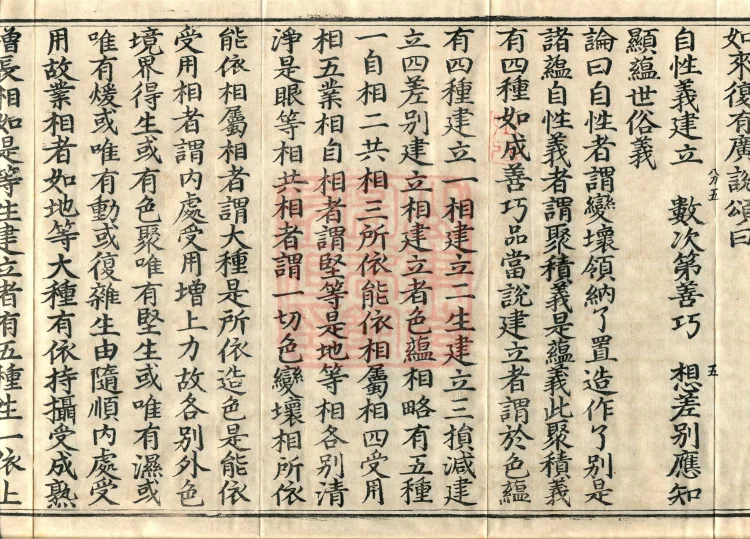 如來復有廣說頌曰
自性義建立　數次第善巧　想差別應知
八分五
五
顯蘊世俗義
論曰自性者謂變壞領納了置造作了別是
諸蘊自性義者謂聚積義是蘊義此聚積義
有四種如成善巧品當說建立者謂於色蘊
有四種建立一相建立二生建立三損減建
立四差別建立相建立者色蘊相略有五種
一自相二共相三所依能依相屬相四受用
相五業相自相者謂堅等是地等相各別清
淨是眼等相共相者謂一切色變壞相所依
能依相屬相者謂大種是所依造色是能依
受用相者謂內處受用增上力故各別外色
境界得生或有色聚唯有堅生或唯有濕或
唯有煖或唯有動或復雜生由隨順內處受
用故業相者如地等大種有依持攝受成熟
增長相如是等生建立者有五種生一依上